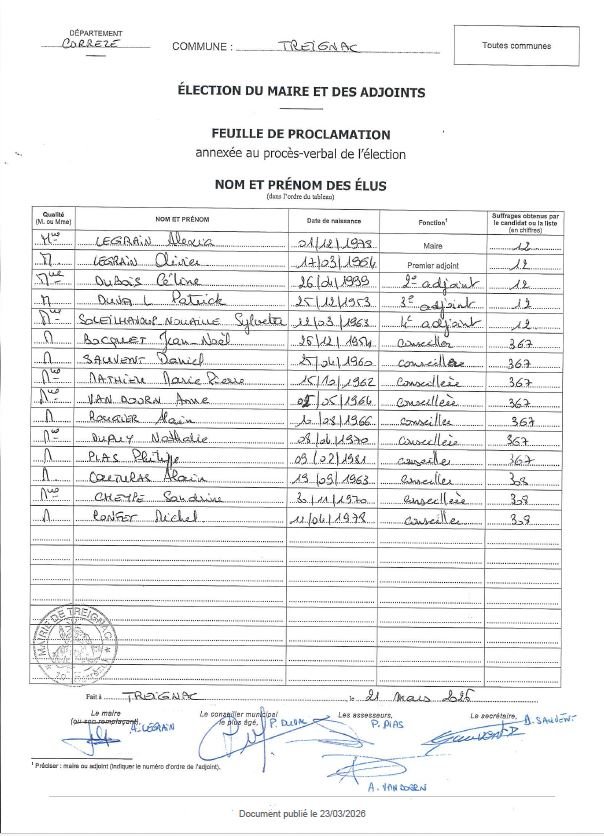 DÉPARTEMENT
CORREZE
COMMUNE : TREIGNAC
Toutes communes
ÉLECTION DU MAIRE ET DES ADJOINTS
FEUILLE DE PROCLAMATION
annexée au procès-verbal de l'élection
NOM ET PRÉNOM DES ÉLUS
(dans l'ordre du tableau)
Qualité (M. ou Mme) NOM ET PRÉNOM Date de naissance Fonction¹ Suffrages obtenus par le candidat ou la liste (en chiffres)
Mme LEGRAIN Alexia 01/12/1978 Maire 12
M LEGRAIN Olivier 17/03/1964 Premier adjoint 12
Mme DUBOIS Céline 26/04/1999 2e adjoint 12
M DUVAL Patrick 25/12/1953 3e adjoint 12
Mme Sylvette 12/03/1963 4e adjoint 12
M BOCQUET Jean-Noël 25/12/1954 conseiller 367
M SAUVENT Daniel 25/04/1960 conseiller 367
Mme MATHIEU Marie Pierre 15/10/1962 Conseillère 367
Mme VAN DOORN Anne /05/1964 Conseillère 367
M ROUGIER Alain 10/08/1966 conseiller 367
Mme DUPUY Nathalie 08/04/1970 conseillère 367
M PLAS Philippe 09/02/1981 conseiller 367
M COUTURAS Alain 19/09/1963 conseiller 308
Mme CHEYPE Sandrine 30/11/1970 conseillère 308
M Michel 11/04/1978 conseiller 308
MAIRIE DE TREIGNAC
Fait à TREIGNAC , le 21 mars
Le maire (ou son remplaçant), Le conseiller municipal le plus âgé, Les assesseurs, Le secrétaire,
A. LEGRAIN P. DUVAL P. PLAS D. SAUVENT
¹ Préciser : maire ou adjoint (indiquer le numéro d'ordre de l'adjoint).
A. VAN DOORN
Document publié le 23/03/2026